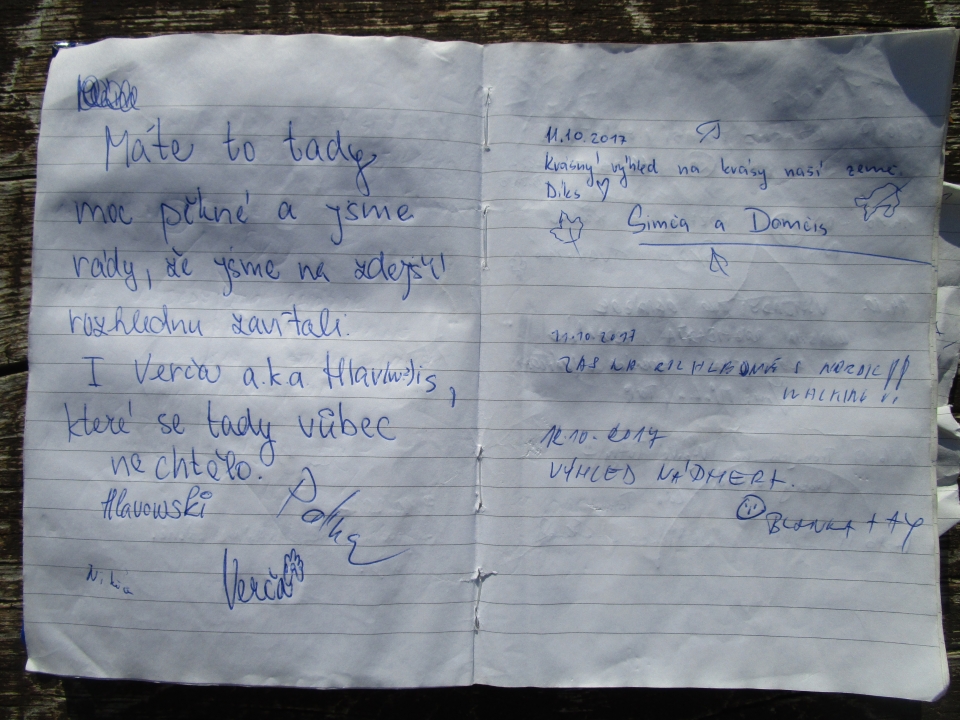 Máte to tady
moc pěkné a jsme
rády, že jsme na zdejší
rozhlednu zavítali.
I Verča a.k.a Hlav(w:)is,
které se tady vůbec
nechtělo.
Hlavowski
Verča
11.10.2017
Krásný výhled na krásy naší země.
Díks ♡
Simča a Domčis
11.10.2017
ZAS NA ROZHLEDNĚ S NORDIC
WALKING!!
12.10.2017
VÝHLED NÁDHERA.
BLANKA +